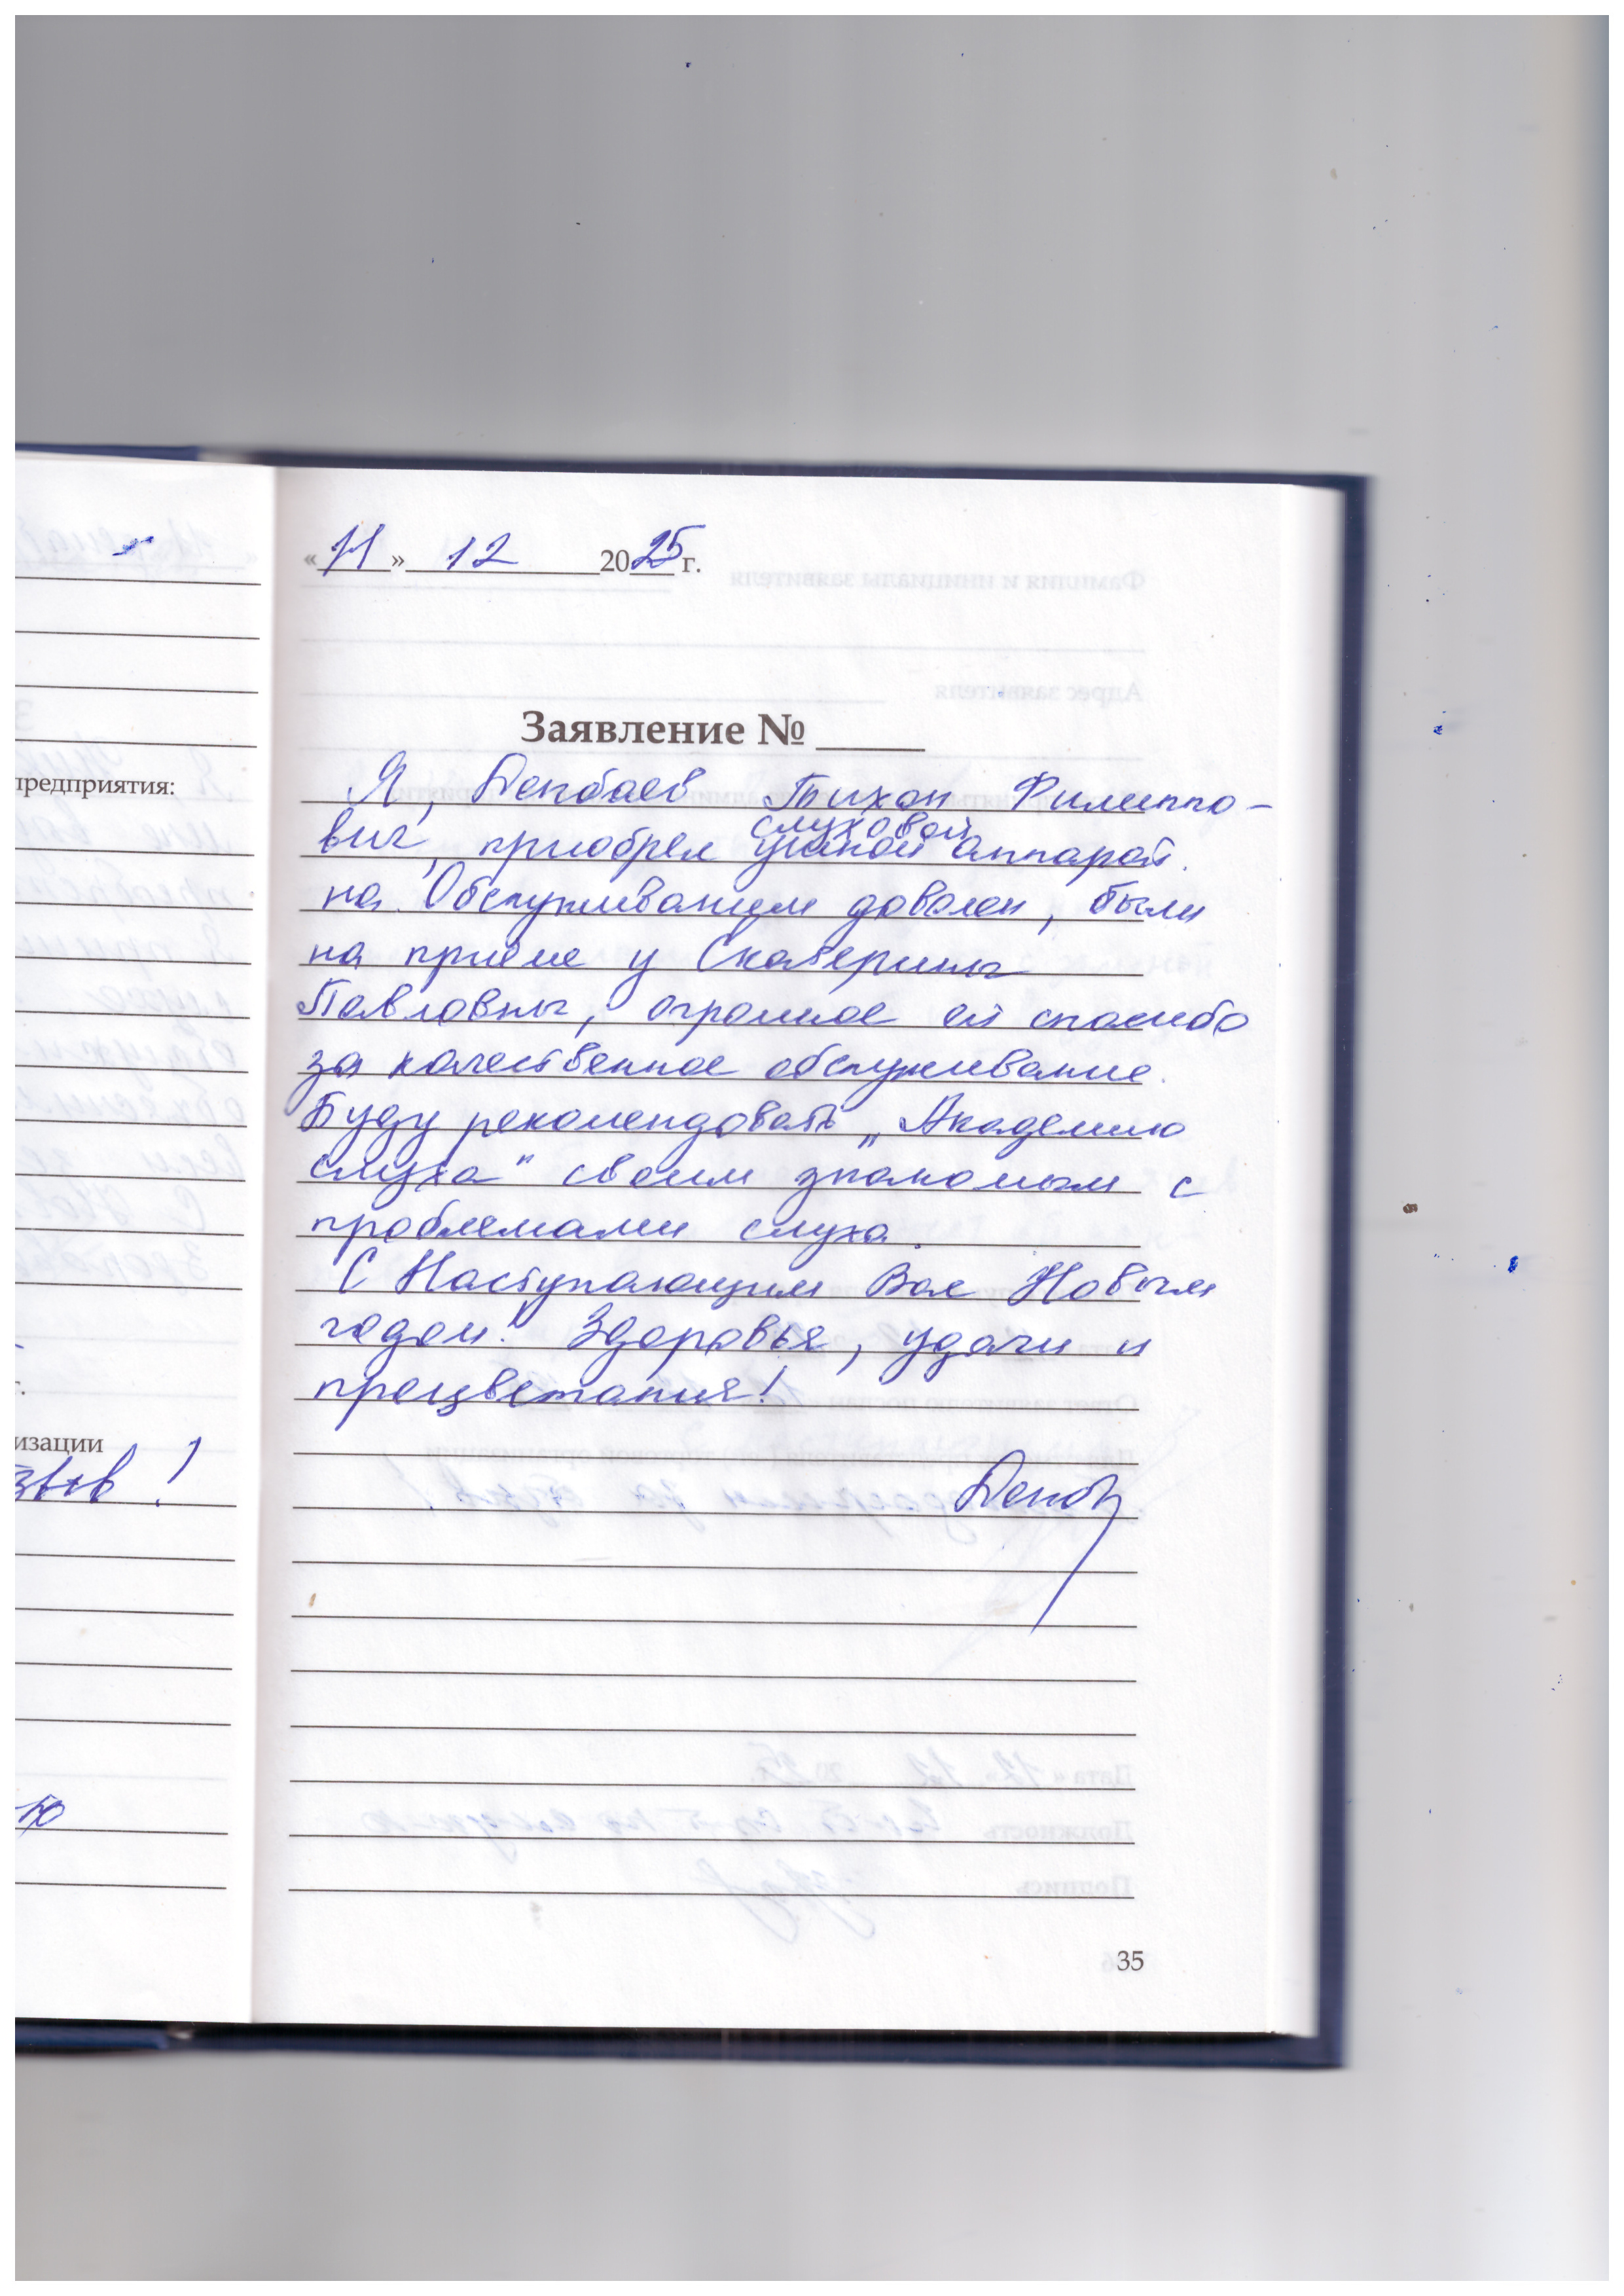 «11» 12 2025 г.
Заявление №
Я, Тихон Филиппо-
вич, приобрел слуховой ушной аппарат.
на Обслуживанием доволен, были
на приёме у Екатерины
Павловны, огромное ей спасибо
за качественное обслуживание.
Буду рекомендовать „Академию
слуха" своим знакомым с
проблемами слуха.
С Наступающим Вас Новым
годом! Здоровья, удачи и
процветания!
35
предприятия:
г.
изации